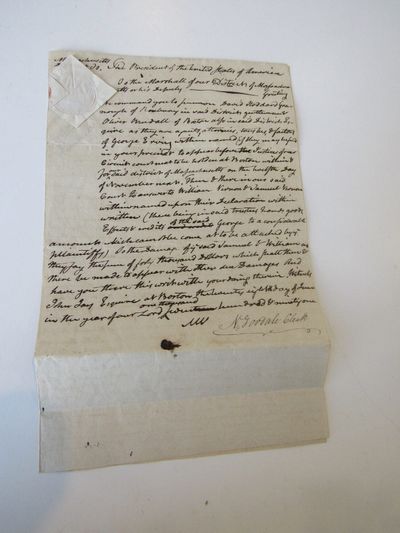 Massachusetts
The President of the United States of America
To the Marshall of our District of Massachusetts
or his Deputy Greeting
We command you to summon David Stoddard Greenough of Roxbury in said District, gentleman
Oliver Wendall of Boston also in said District
Esquire as they are agents, attornies,
of George Erving within named if they may be found
in your precinct to appear before the Justices of our
Circuit court next to be holden at Boston within &
for said district of Massachusetts on the twelfth Day
of November next. Then & there in our said
Court to answer to William Vernon & Samuel Vernon
within named upon their Declaration within
written (there being in said trustees hands goods
Effects & credits of the said George to a considerable
amount which cannot be come at to be attached by
plaintiffs) To the Damage of said Samuel & William as
they say the sum of forty thousand dollars which shall then &
there be made to appear with other due Damages And
have you there this writ with your doings therein Witness
John Jay Esquire at Boston the twenty eighth day of June
in the year of our Lord one thousand seven hundred & ninety one
N. Goodale Clerk